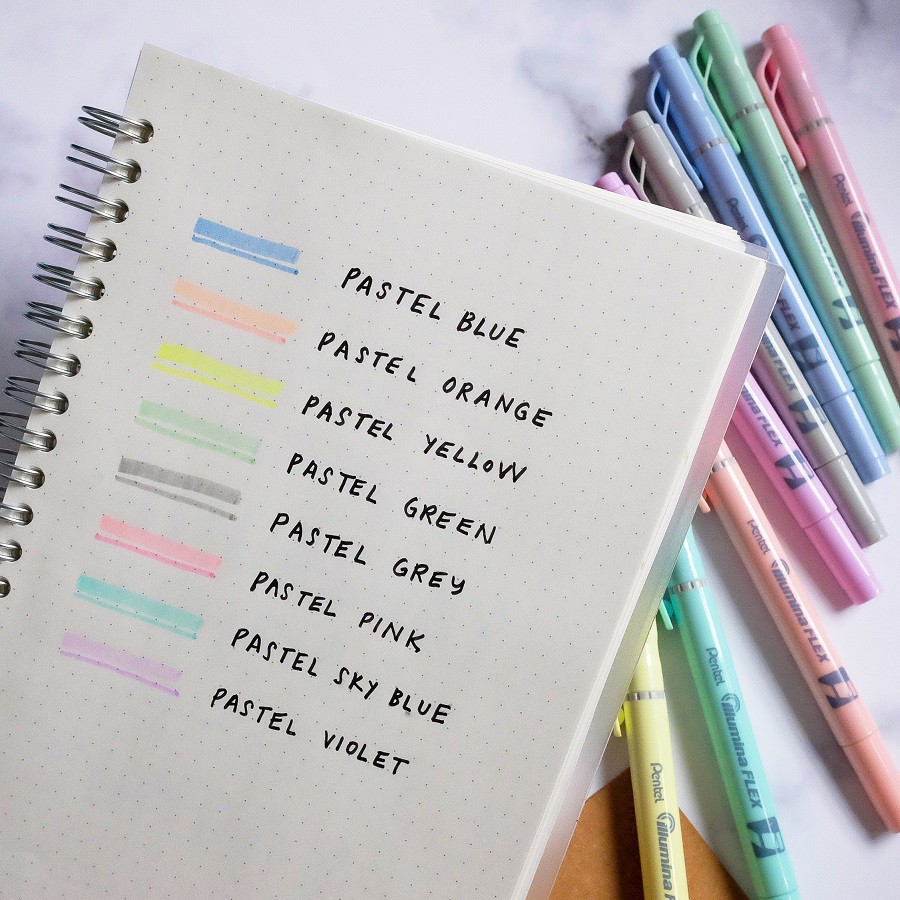 PASTEL BLUE
PASTEL ORANGE
PASTEL YELLOW
PASTEL GREEN
PASTEL GREY
PASTEL PINK
PASTEL SKY BLUE
PASTEL VIOLET
Pentel illumina FLEX
Pentel illumina FLEX
Pentel illumina FLEX
illumina FLEX
illumina FLEX
Pentel illumina FLEX
Pentel illumina FLEX
Pentel illumina